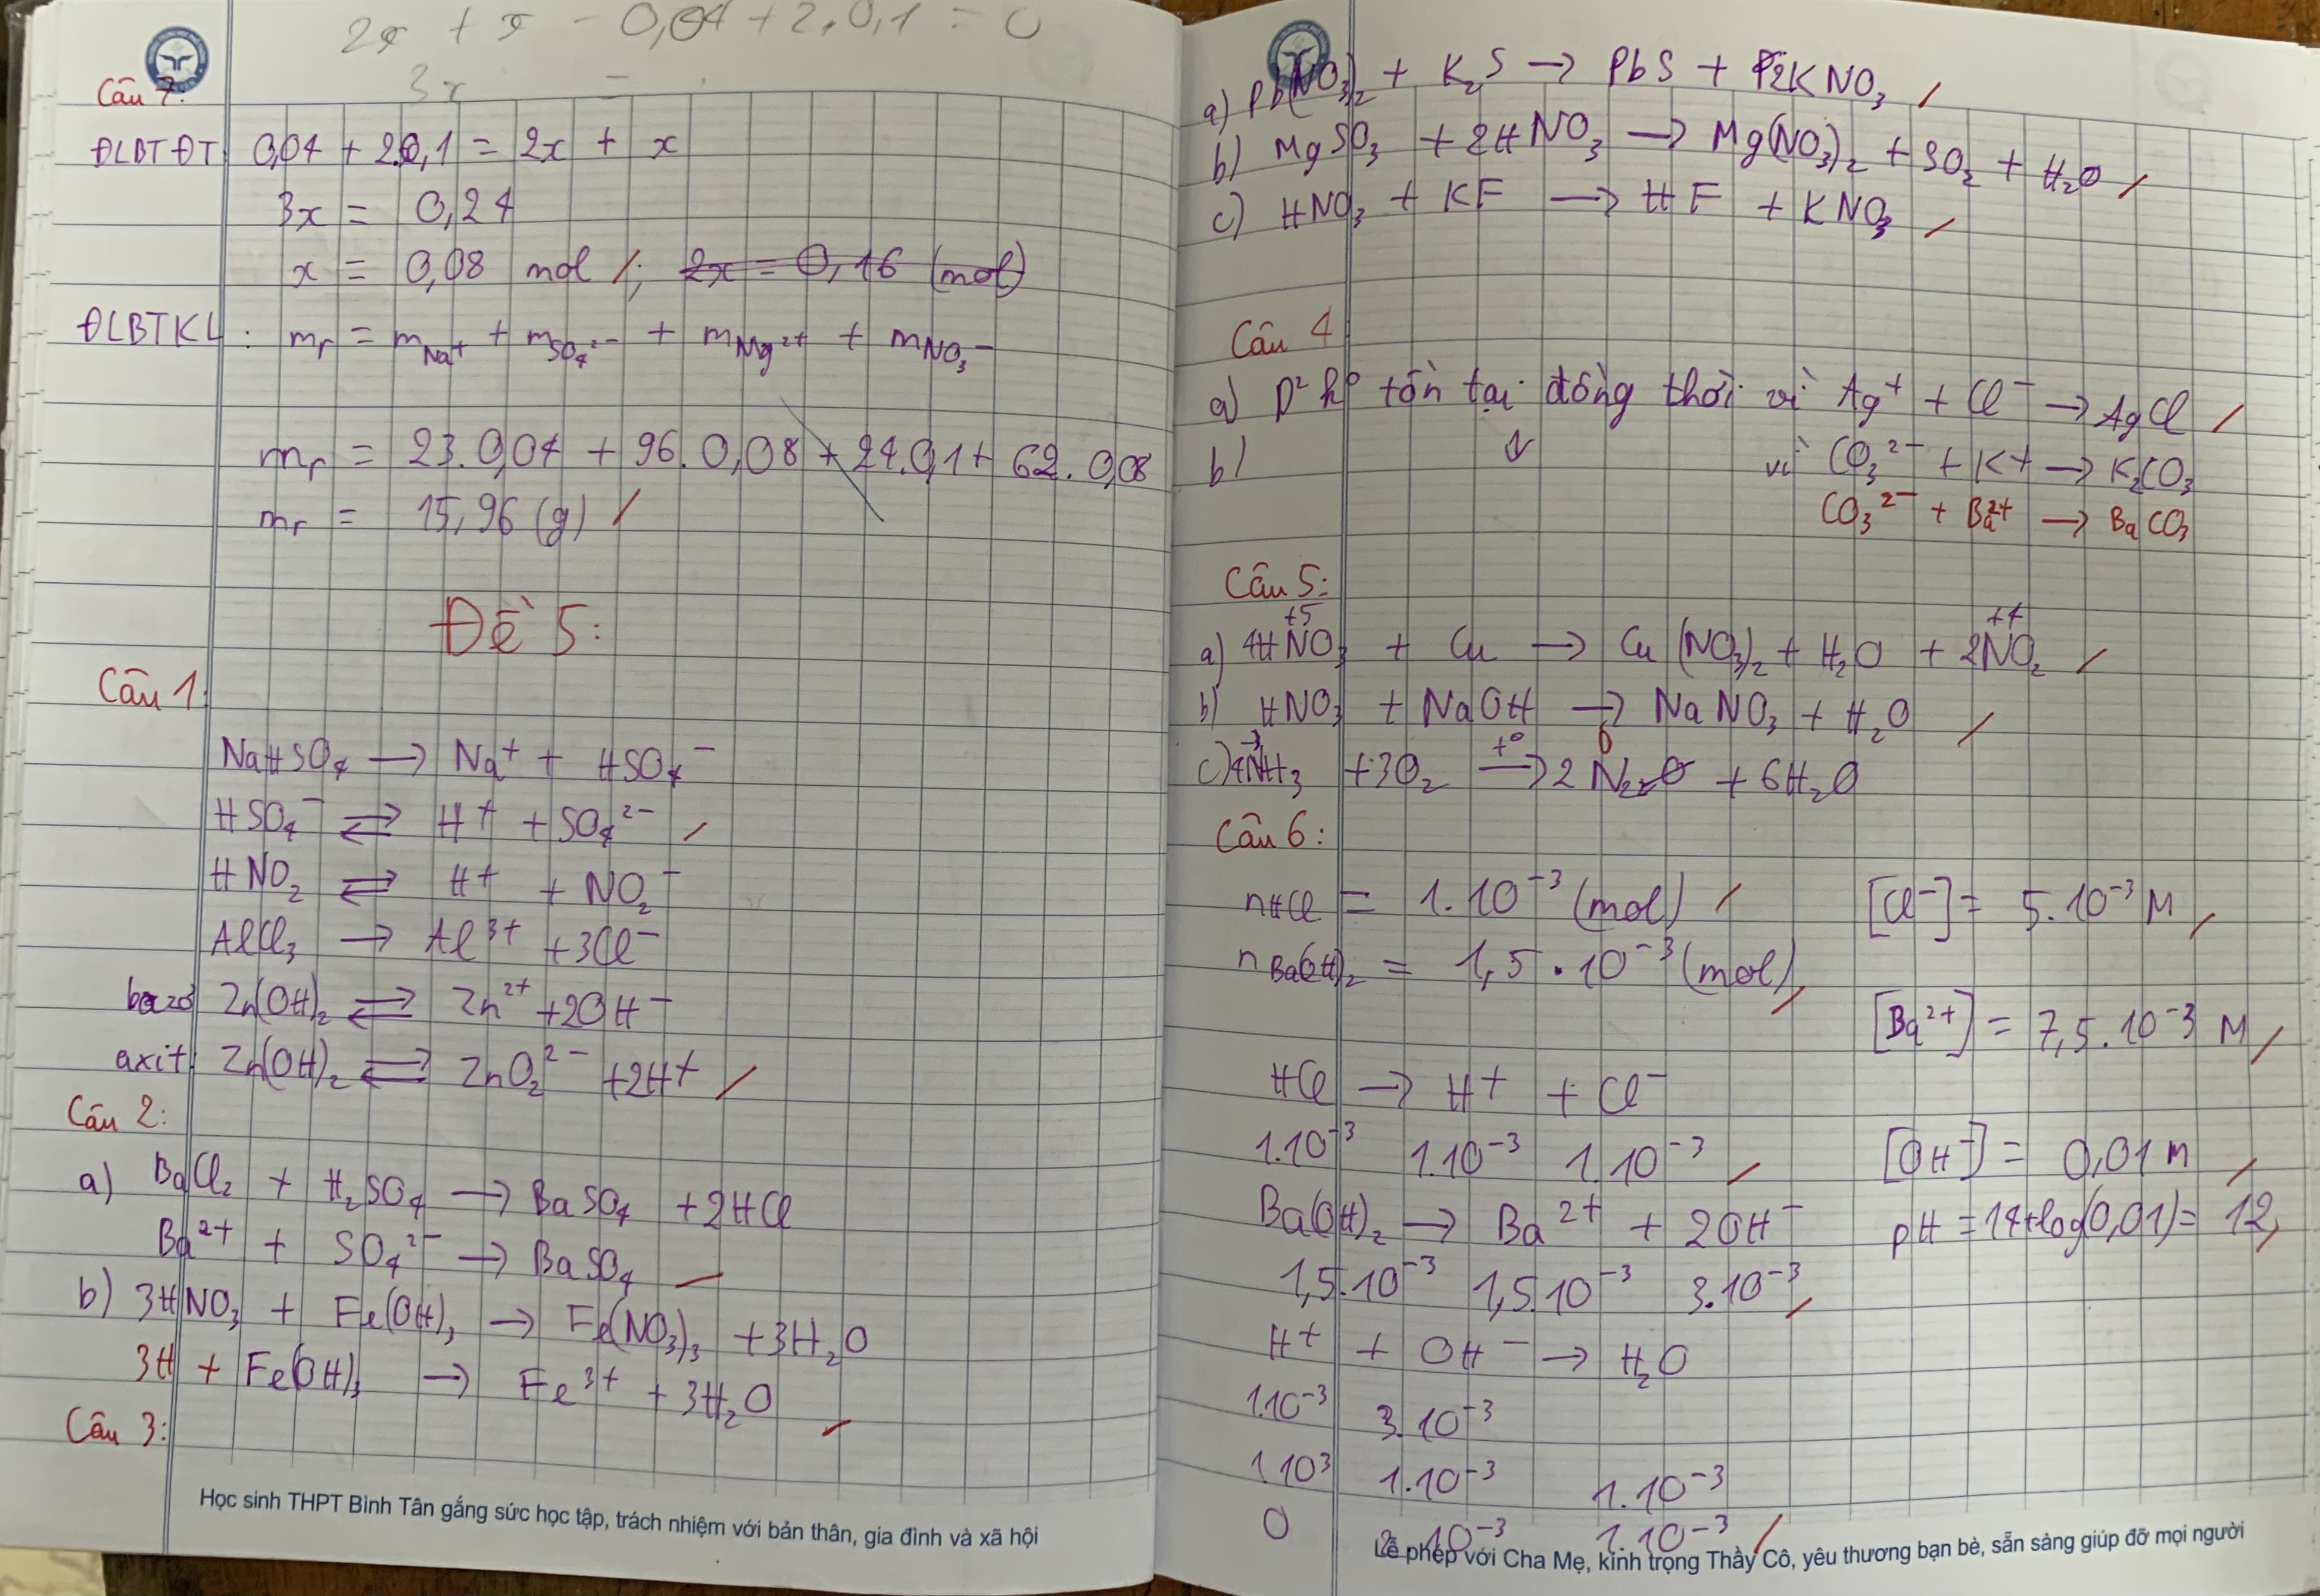 2x + x - 0,04 + 2.0,1 = 0
3x =
Câu 7:
ĐLBTĐT: 0,04 + 2.0,1 = 2x + x
3x = 0,24
x = 0,08 mol ; 2x = 0,16 (mol)
ĐLBTKL: mr = mNa⁺ + mSO₄²⁻ + mMg²⁺ + mNO₃⁻
mr = 23.0,04 + 96.0,08 + 24.0,1 + 62.0,08
mr = 15,96 (g)
Đề 5:
Câu 1:
NaHSO₄ → Na⁺ + HSO₄⁻
HSO₄⁻ ⇌ H⁺ + SO₄²⁻
HNO₂ ⇌ H⁺ + NO₂⁻
AlCl₃ → Al³⁺ + 3Cl⁻
bazơ Zn(OH)₂ ⇌ Zn²⁺ + 2OH⁻
axit Zn(OH)₂ ⇌ ZnO₂²⁻ + 2H⁺
Câu 2:
a) BaCl₂ + H₂SO₄ → BaSO₄ + 2HCl
Ba²⁺ + SO₄²⁻ → BaSO₄
b) 3HNO₃ + Fe(OH)₃ → Fe(NO₃)₃ + 3H₂O
3H + Fe(OH)₃ → Fe³⁺ + 3H₂O
Câu 3:
Học sinh THPT Bình Tân gắng sức học tập, trách nhiệm với bản thân, gia đình và xã hội
a) Pb(NO₃)₂ + K₂S → PbS + 2KNO₃
b) MgSO₃ + 2HNO₃ → Mg(NO₃)₂ + SO₂ + H₂O
c) HNO₃ + KF → HF + KNO₃
Câu 4
a) D² k° tồn tại đồng thời vì Ag⁺ + Cl⁻ → AgCl
b) ↓ vì CO₃²⁻ + K+ → K₂CO₃
CO₃²⁻ + Ba²⁺ → BaCO₃
Câu 5:
+5 +4
a) 4HNO₃ + Cu → Cu(NO₃)₂ + H₂O + 2NO₂
b) HNO₃ + NaOH → NaNO₃ + H₂O
-3 t° 0
c) 4NH₃ + 3O₂ → 2N₂ + 6H₂O
Câu 6:
nHCl = 1.10⁻³ (mol)
nBa(OH)₂ = 1,5.10⁻³ (mol)
HCl → H⁺ + Cl⁻
1.10⁻³ 1.10⁻³ 1.10⁻³
Ba(OH)₂ → Ba²⁺ + 2OH⁻
1,5.10⁻³ 1,5.10⁻³ 3.10⁻³
H⁺ + OH⁻ → H₂O
1.10⁻³ 3.10⁻³
1.10³ 1.10⁻³ 1.10⁻³
0 2.10⁻³ 1.10⁻³
[Cl⁻] = 5.10⁻³ M
[Ba²⁺] = 7,5.10⁻³ M
[OH⁻] = 0,01 M
pH = 14+log(0,01) = 12
Lễ phép với Cha Mẹ, kính trọng Thầy Cô, yêu thương bạn bè, sẵn sàng giúp đỡ mọi người